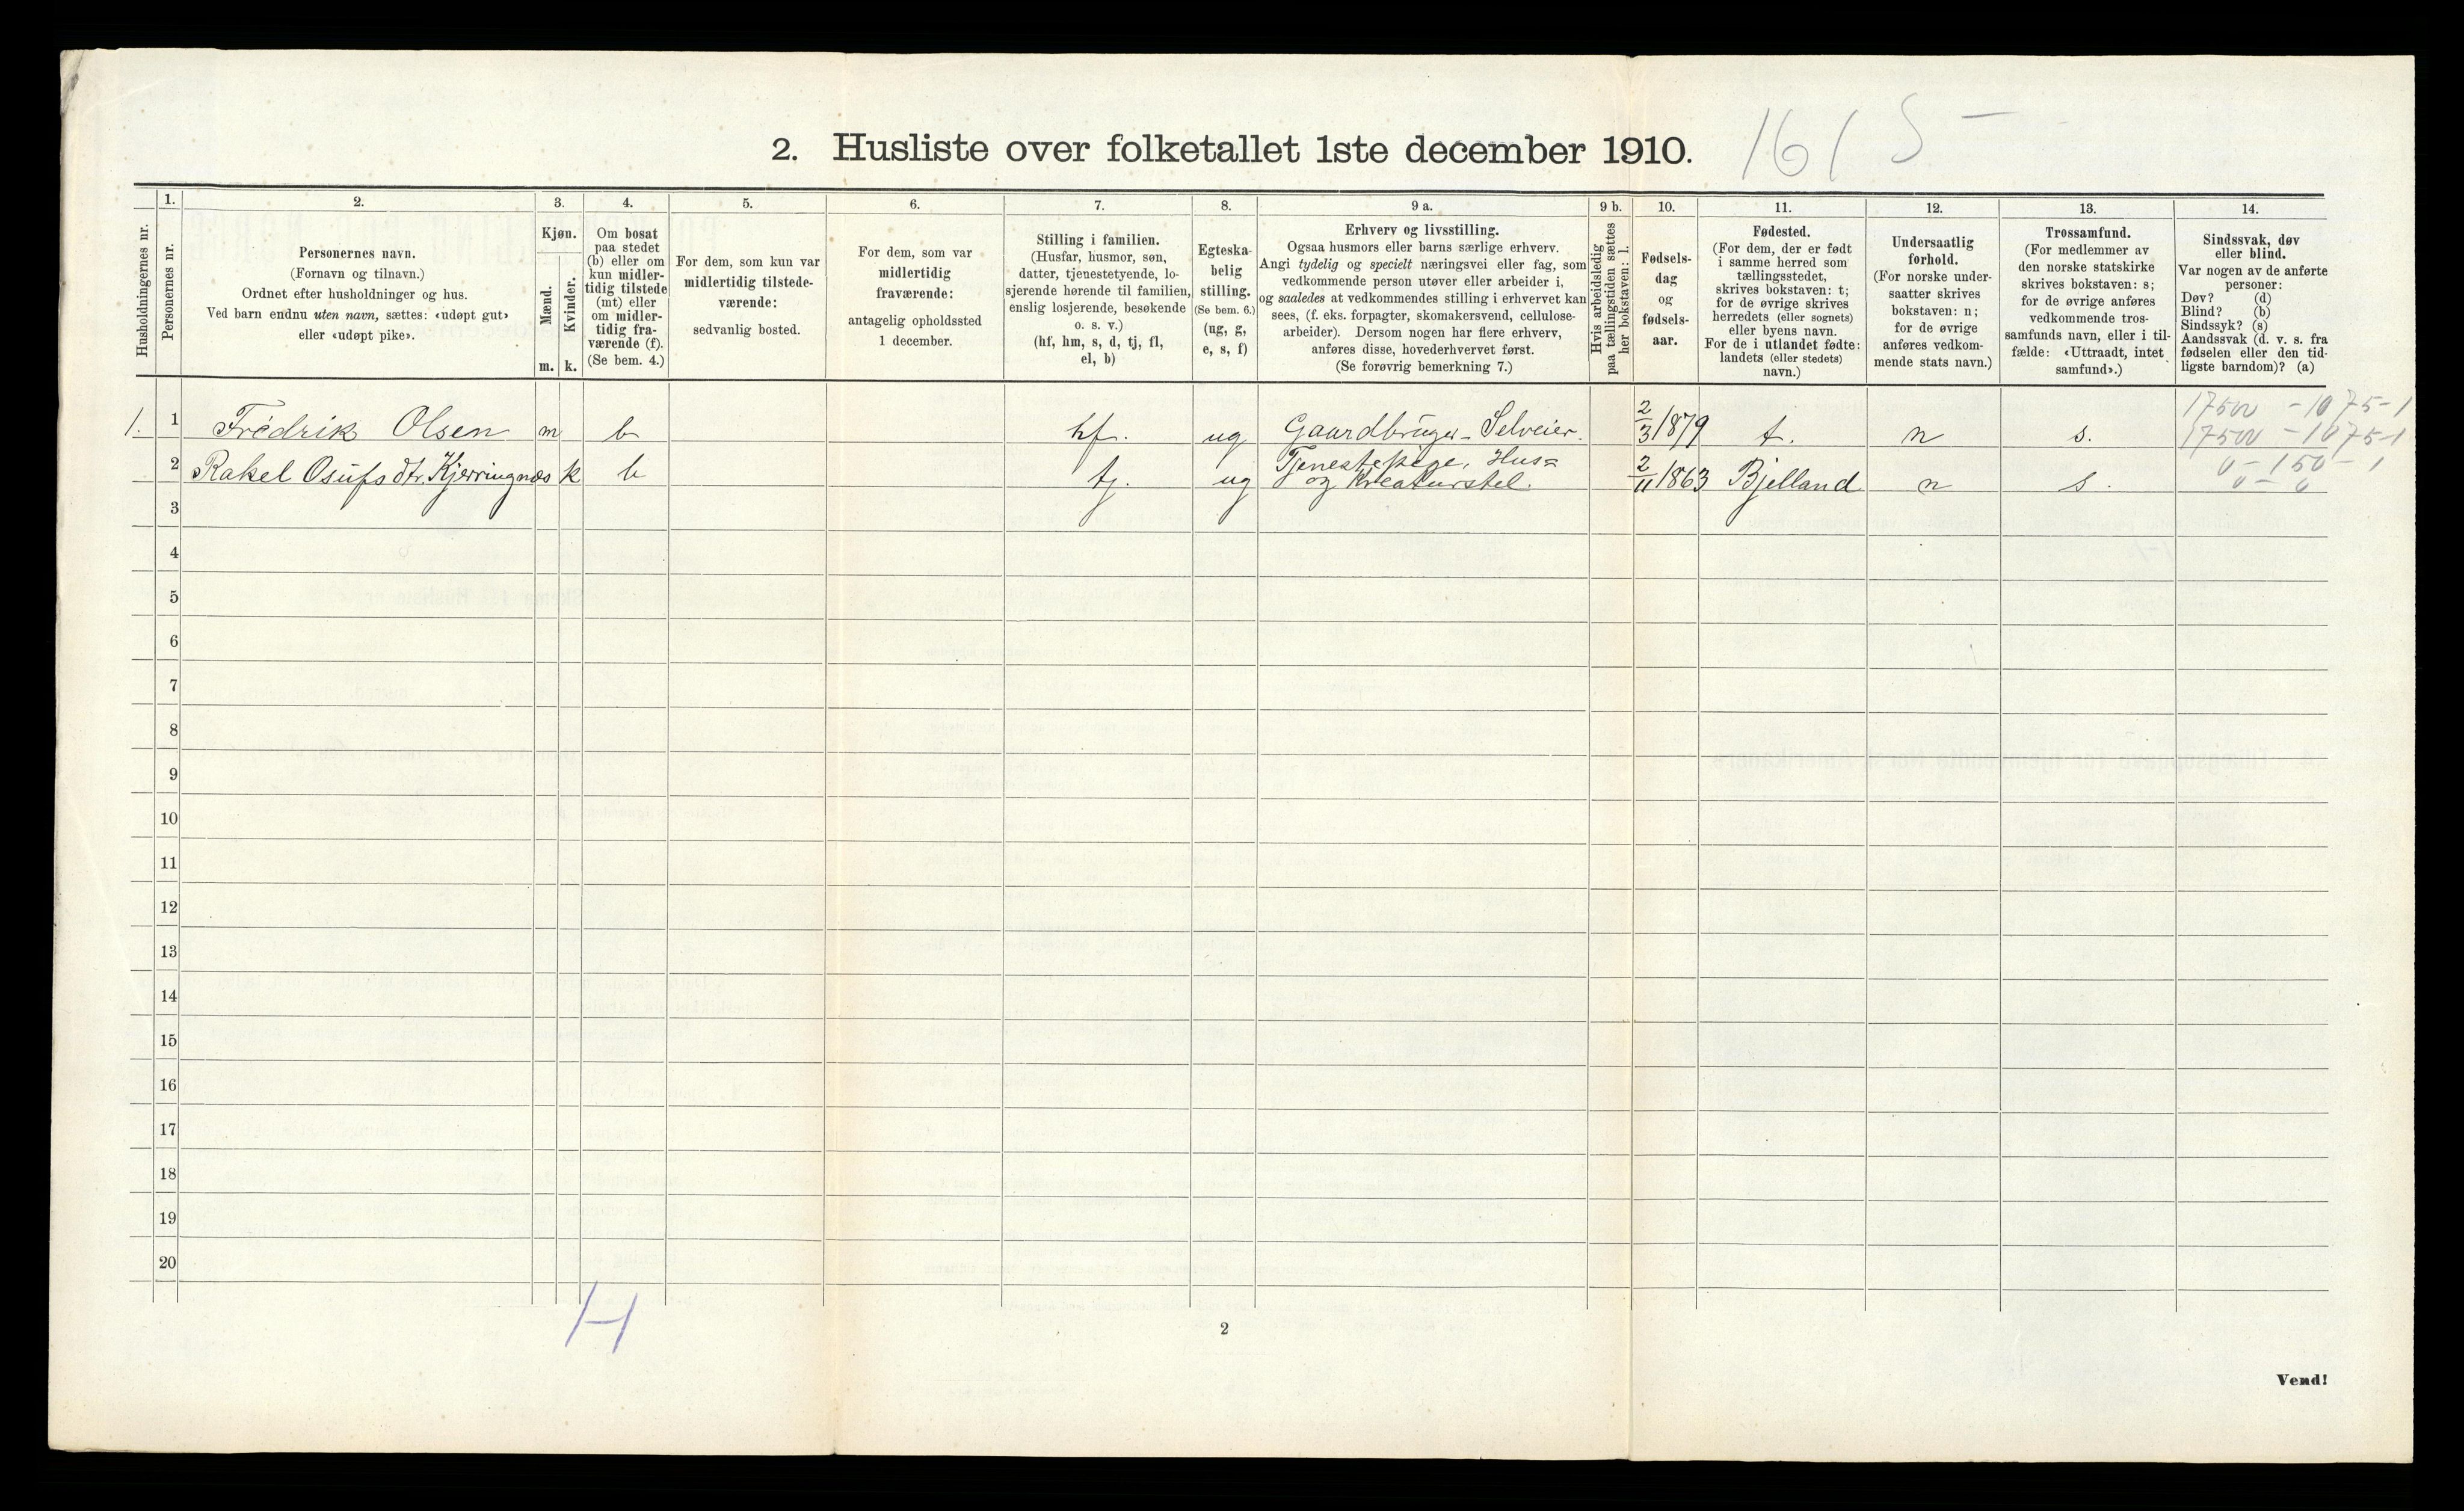 2. Husliste over folketallet 1ste december 1910.
161 5 -
Husholdningernes nr.
1.
Personernes nr.
2.
Personernes navn.
(Fornavn og tilnavn.)
Ordnet efter husholdninger og hus.
Ved barn endnu uten navn, sættes: «udøpt gut»
eller «udøpt pike».
3.
Kjøn.
Mænd.
Kvinder.
m. k.
4.
Om bosat
paa stedet
(b) eller om
kun midler-
tidig tilstede
(mt) eller
om midler-
tidig fra-
værende (f).
(Se bem. 4.)
5.
For dem, som kun var
midlertidig tilstede-
værende:
sedvanlig bosted.
6.
For dem, som var
midlertidig
fraværende:
antagelig opholdssted
1 december.
7.
Stilling i familien.
(Husfar, husmor, søn,
datter, tjenestetyende, lo-
sjerende hørende til familien,
enslig losjerende, besøkende
o. s. v.)
(hf, hm, s, d, tj, fl,
el, b)
8.
Egteska-
belig
stilling.
(Se bem. 6.)
(ug, g,
e, s, f)
9 a.
Erhverv og livsstilling.
Ogsaa husmors eller barns særlige erhverv.
Angi tydelig og specielt næringsvei eller fag, som
vedkommende person utøver eller arbeider i,
og saaledes at vedkommendes stilling i erhvervet kan
sees, (f. eks. forpagter, skomakersvend, cellulose-
arbeider). Dersom nogen har flere erhverv,
anføres disse, hovederhvervet først.
(Se forøvrig bemerkning 7.)
9 b.
Hvis arbeidsledig
paa tællingstiden sættes
her bokstaven: l.
10.
Fødsels-
dag
og
fødsels-
aar.
11.
Fødested.
(For dem, der er født
i samme herred som
tællingsstedet,
skrives bokstaven: t;
for de øvrige skrives
herredets (eller sognets)
eller byens navn.
For de i utlandet fødte:
landets (eller stedets)
navn.)
12.
Undersaatlig
forhold.
(For norske under-
saatter skrives
bokstaven: n;
for de øvrige
anføres vedkom-
mende stats navn.)
13.
Trossamfund.
(For medlemmer av
den norske statskirke
skrives bokstaven: s;
for de øvrige anføres
vedkommende tros-
samfunds navn, eller i til-
fælde: «Uttraadt, intet
samfund».)
14.
Sindssvak, døv
eller blind.
Var nogen av de anførte
personer:
Døv? (d)
Blind? (b)
Sindssyk? (s)
Aandssvak (d. v. s. fra
fødselen eller den tid-
ligste barndom)? (a)
1. 1 Frédrik Olsen m b hf. ug Gaardbruger - Selveier. 2/3 1879 t. n s.
17500 - 1075-1
17500 - 1075-1
2 Rakel Osufs dtr. Kjerringnæs k b tj. ug Tjenestepige, Hus=
og Kreaturstel. 2/11 1863 Bjelland n s.
0 - 150 - 1
0 - 0
3
4
5
6
7
8
9
10
11
12
13
14
15
16
17
18
19
20
H
2
Vend!